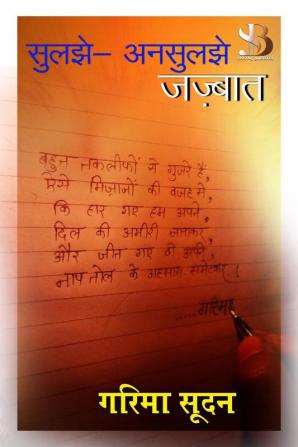 सुलझे– अनसुलझे
जज़्बात
बहुत तकलीफों से गुज़रे हैं,
ऐसे मिज़ाजों की वजह से,
कि हार गए हम अपने,
दिल की अमीरी जताकर,
और जीत गए वो अपने,
नाप तोल के अहसास समेटकर ।
.....गरिमा
गरिमा सूदन